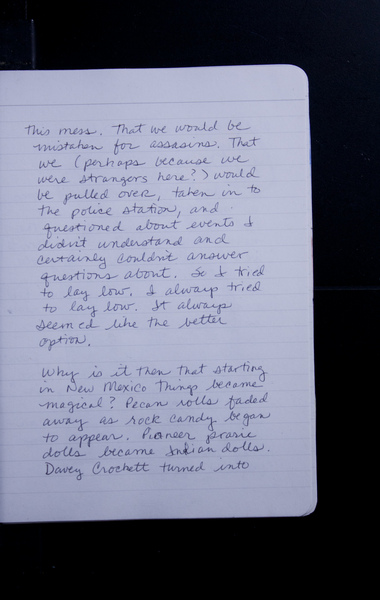 this mess. That we would be
mistaken for assasins. That
we (perhaps because we
were strangers here?) would
be pulled over, taken in to
the police station, and
questioned about events I
didn't understand and
certainly couldn't answer
questions about. So I tried
to lay low. I always tried
to lay low. It always
seemed like the better
option.
Why is it then that starting
in New Mexico things became
magical? Pecan rolls faded
away as rock candy began
to appear. Pioneer prarie
dolls became Indian dolls.
Davey Crockett turned into